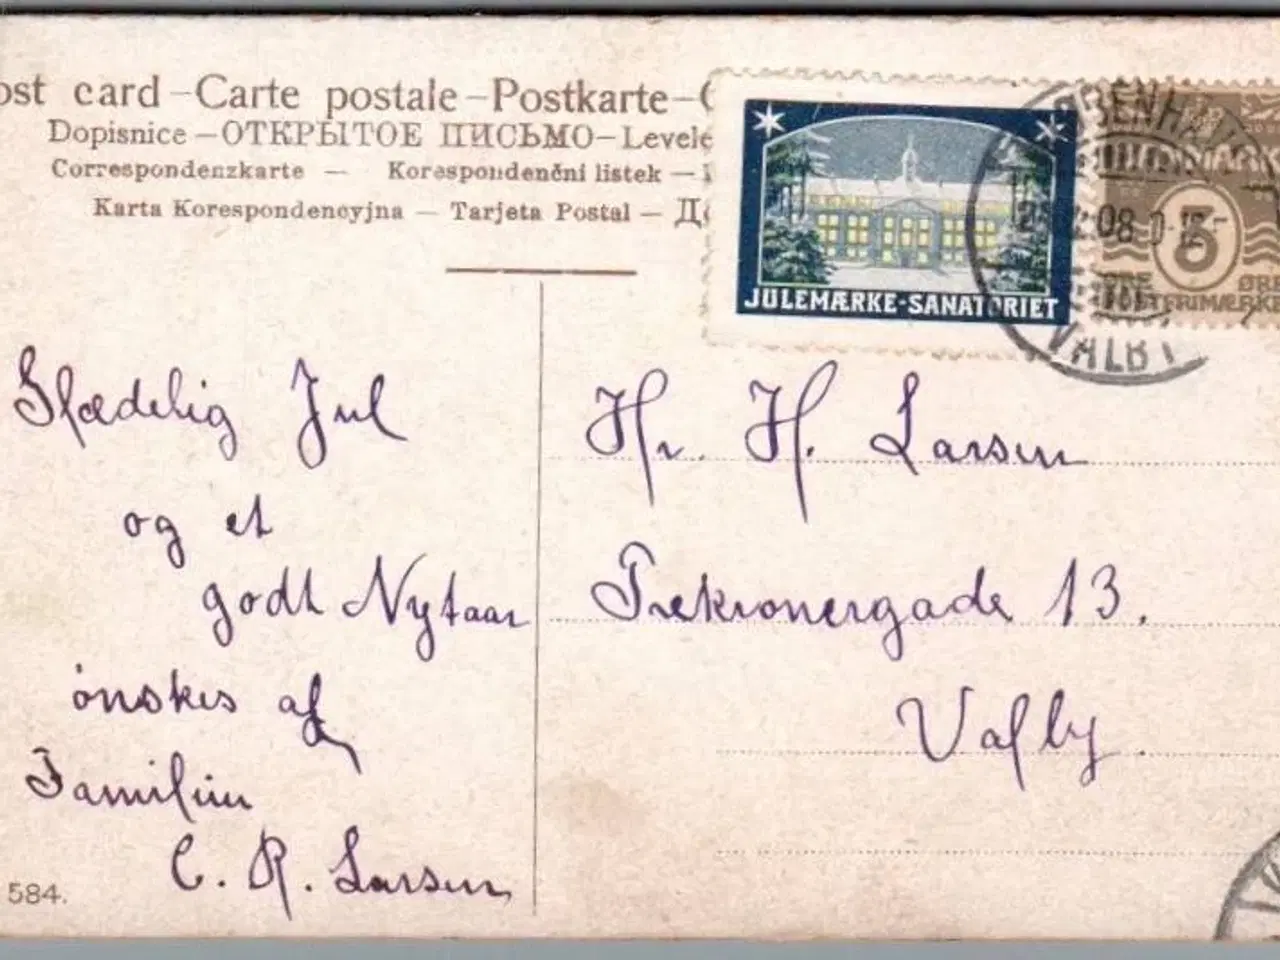 ost card – Carte postale – Postkarte –
Dopisnice – ОТКРЫТОЕ ПИСЬМО – Levele
Correspondenzkarte – Korespondenční listek –
Karta Korespondencyjna – Tarjeta Postal –
JULEMÆRKE-SANATORIET
KØBENHAV
08
VALBY
3
ØRE
FRIMÆRKE
Glædelig Jul
og et
godt Nytaar
önskes af
Familien
C. R. Larsen
584.
Hr. H. Larsen
Trekronergade 13.
Valby.